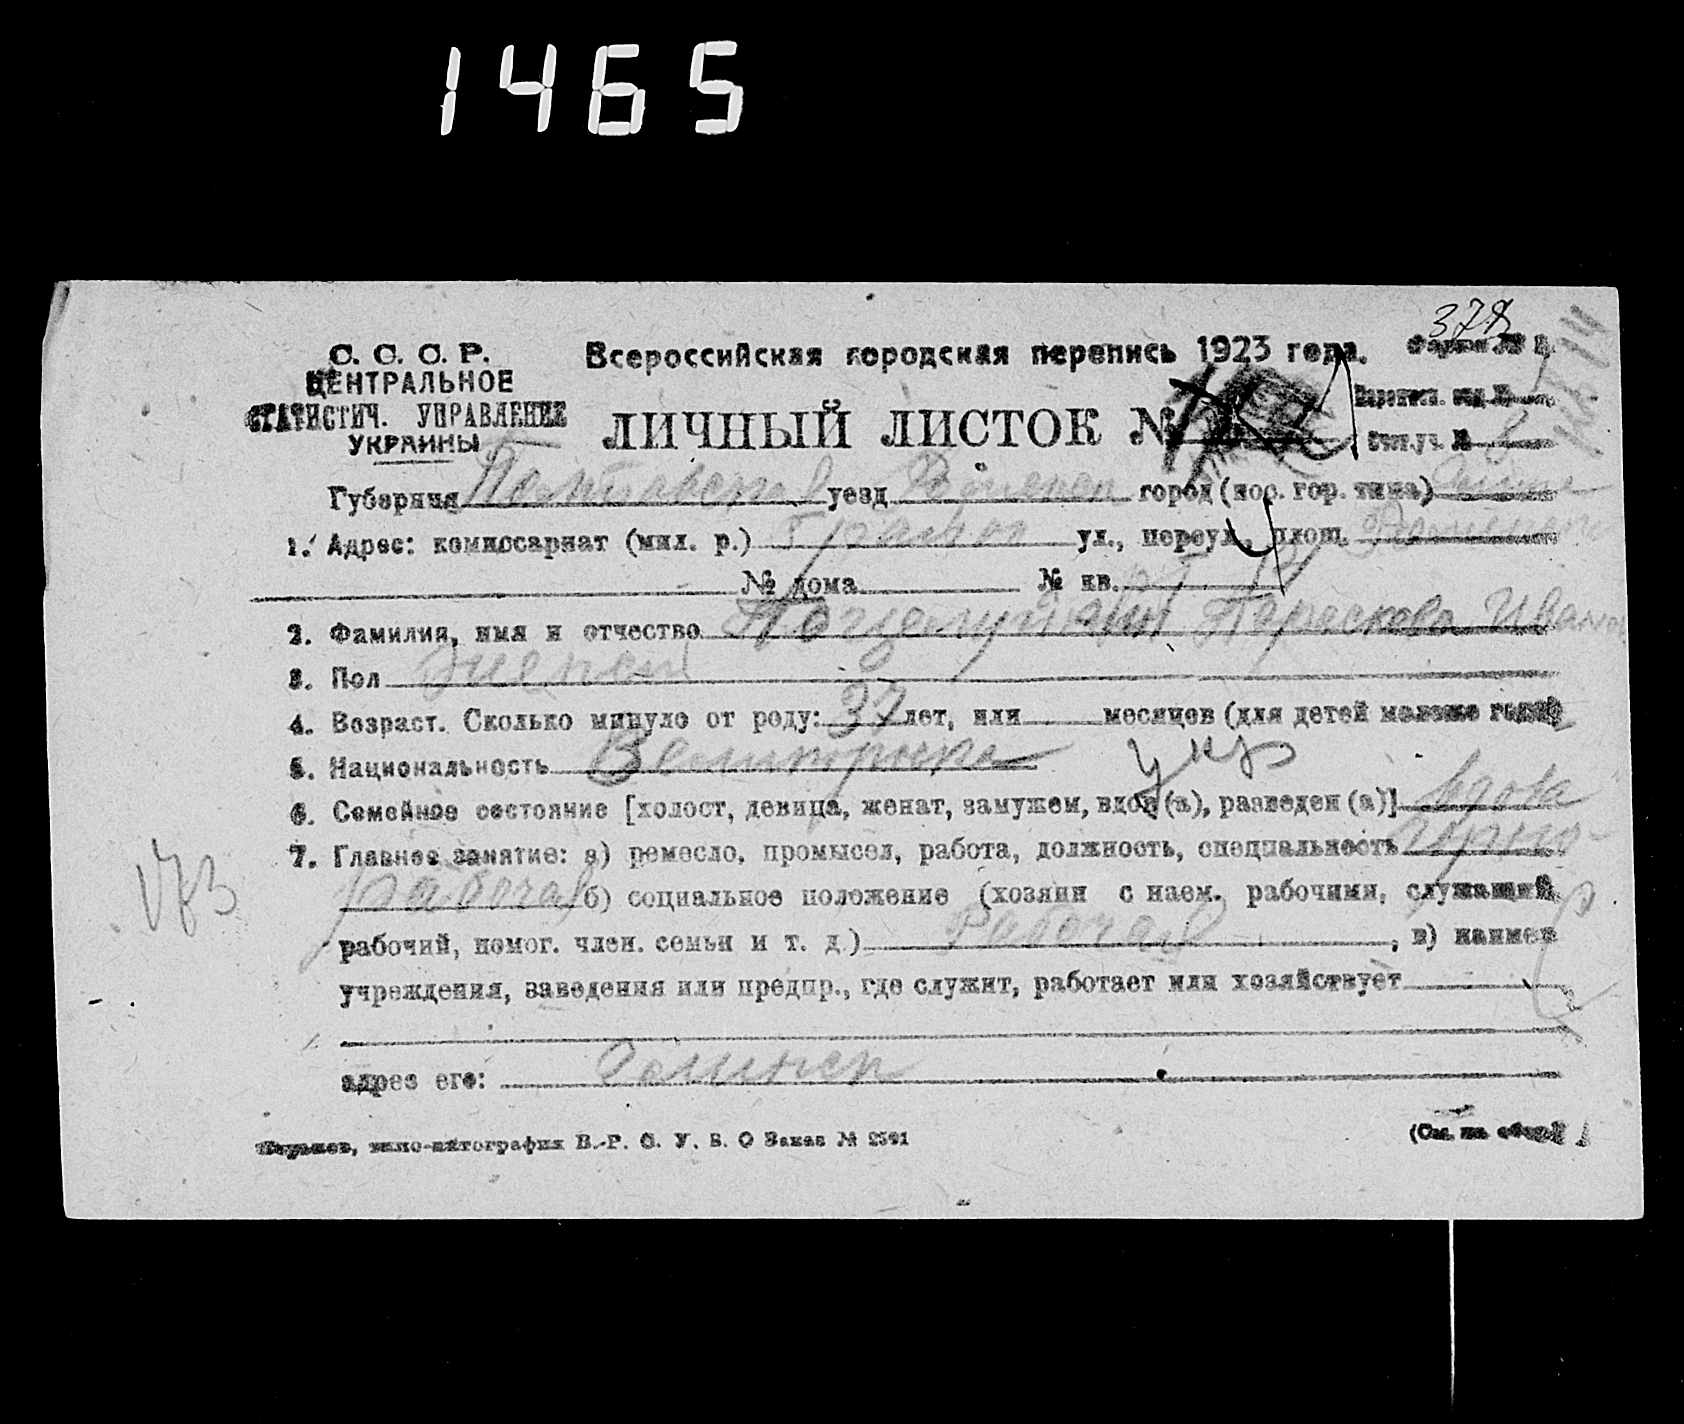 1465
378
С. С. С. Р.
ЦЕНТРАЛЬНОЕ
СТАТИСТИЧ. УПРАВЛЕНИЕ
УКРАИНЫ
Всероссийская городская перепись 1923 года.
ЛИЧНЫЙ ЛИСТОК №
Губерния Полтавская уезд город (пос. гор. типа)
1. Адрес: комиссариат (мил. р.) ул., переул., площ.
№ дома № кв.
2. Фамилия, имя и отчество Парасковья Иванов
3. Пол женский
4. Возраст. Сколько минуло от роду: 37 лет, или месяцев (для детей моложе года)
5. Национальность укр
6. Семейное состояние [холост, девица, женат, замужем, вдов (а), разведен (а)] вдова
7. Главное занятие: а) ремесло, промысел, работа, должность, специальность Черно-
рабочая б) социальное положение (хозяин с наем. рабочими, служащий,
рабочий, помог. член. семьи и т. д.) Рабочая, в) наимен
учреждения, заведения или предпр., где служит, работает или хозяйствует
адрес его:
173
Харьков, В.-Р. С. У. Б. О Заказ № 2501
(См. на обор.)